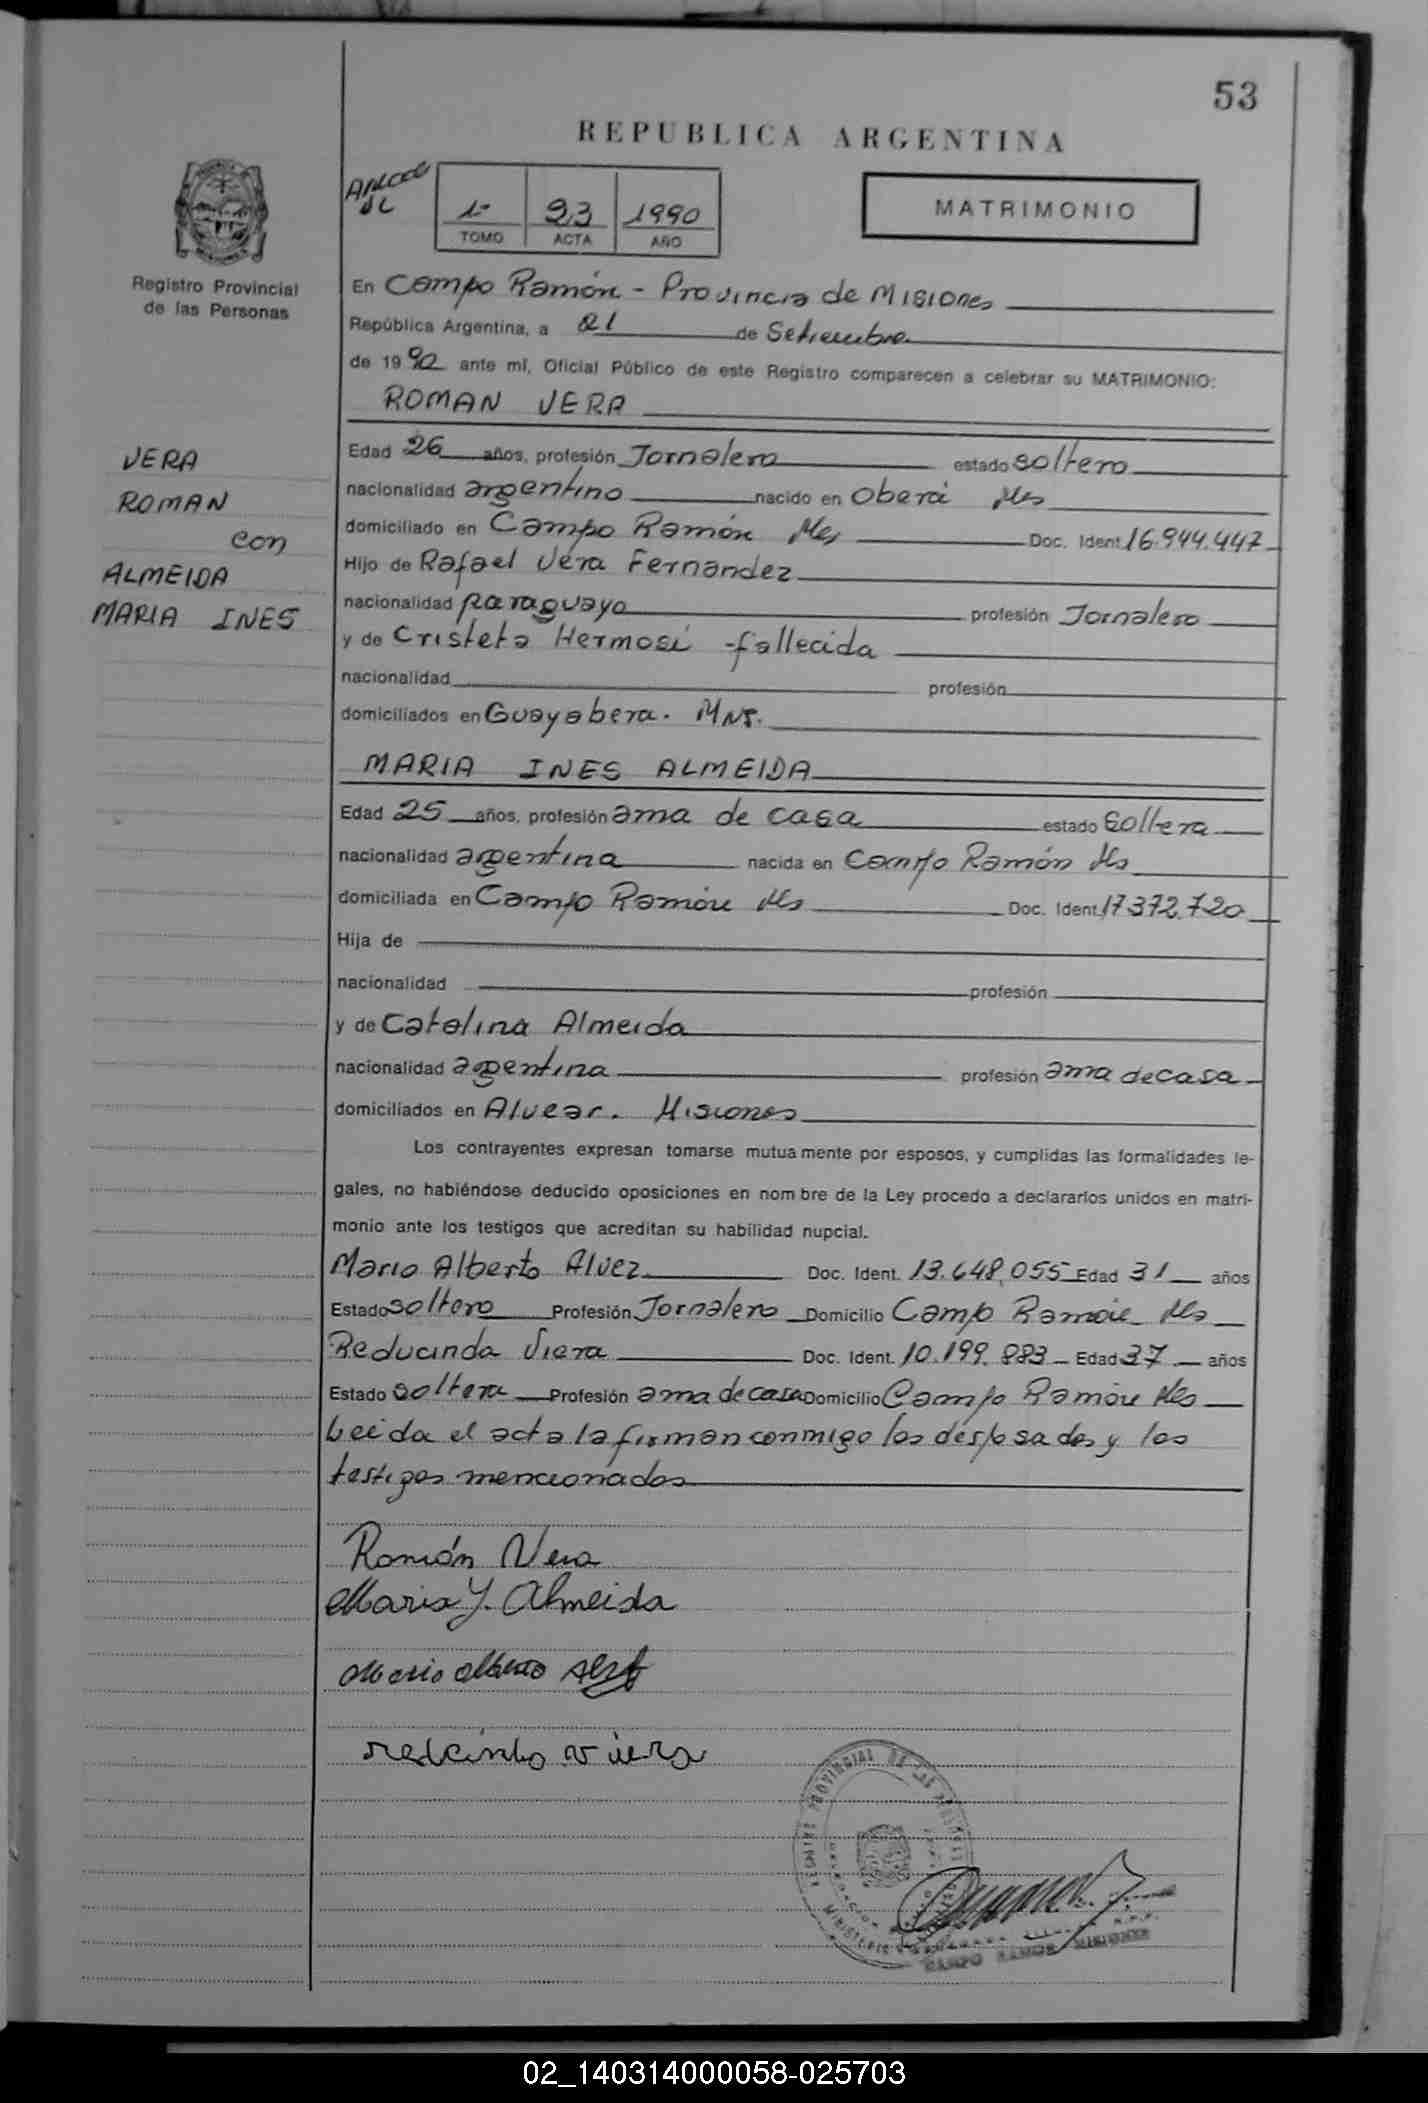 53
REPUBLICA ARGENTINA
1º 93 1990
TOMO ACTA AÑO
MATRIMONIO
Registro Provincial
de las Personas
En Campo Ramón - Provincia de Misiones
República Argentina, a 21 de Setiembre
de 1990 ante mí, Oficial Público de este Registro comparecen a celebrar su MATRIMONIO:
ROMAN VERA
VERA
ROMAN
con
ALMEIDA
MARIA INES
Edad 26 años, profesión Jornalero estado soltero
nacionalidad argentino nacido en Oberá Mes
domiciliado en Campo Ramón Mes Doc. Ident. 16.944.447
Hijo de Rafael Vera Fernandez
nacionalidad paraguayo profesión Jornalero
y de Cristeta Hermosi - fallecida
nacionalidad profesión
domiciliados en Guayabera. Mns.
MARIA INES ALMEIDA
Edad 25 años, profesión ama de casa estado soltera
nacionalidad argentina nacida en Campo Ramón Ms
domiciliada en Campo Ramón Ms Doc. Ident. 17.372.720
Hija de
nacionalidad profesión
y de Catalina Almeida
nacionalidad argentina profesión ama de casa
domiciliados en Alvear. Misiones
Los contrayentes expresan tomarse mutuamente por esposos, y cumplidas las formalidades le-
gales, no habiéndose deducido oposiciones en nombre de la Ley procedo a declararlos unidos en matri-
monio ante los testigos que acreditan su habilidad nupcial.
Mario Alberto Alvez Doc. Ident. 13.648.055 Edad 31 años
Estado soltero Profesión Jornalero Domicilio Campo Ramón Ms
Reducinda Viera Doc. Ident. 10.199.883 Edad 37 años
Estado soltera Profesión ama de casa Domicilio Campo Ramón Mes
Leida el acta la firman conmigo los desposados y los
testigos mencionados
Ramón Vera
Maria Y. Almeida
Mario Alberto
viera
REGISTRO PROVINCIAL DE LAS PERSONAS
MINISTERIO
CAMPO RAMON MISIONES
02_140314000058-025703